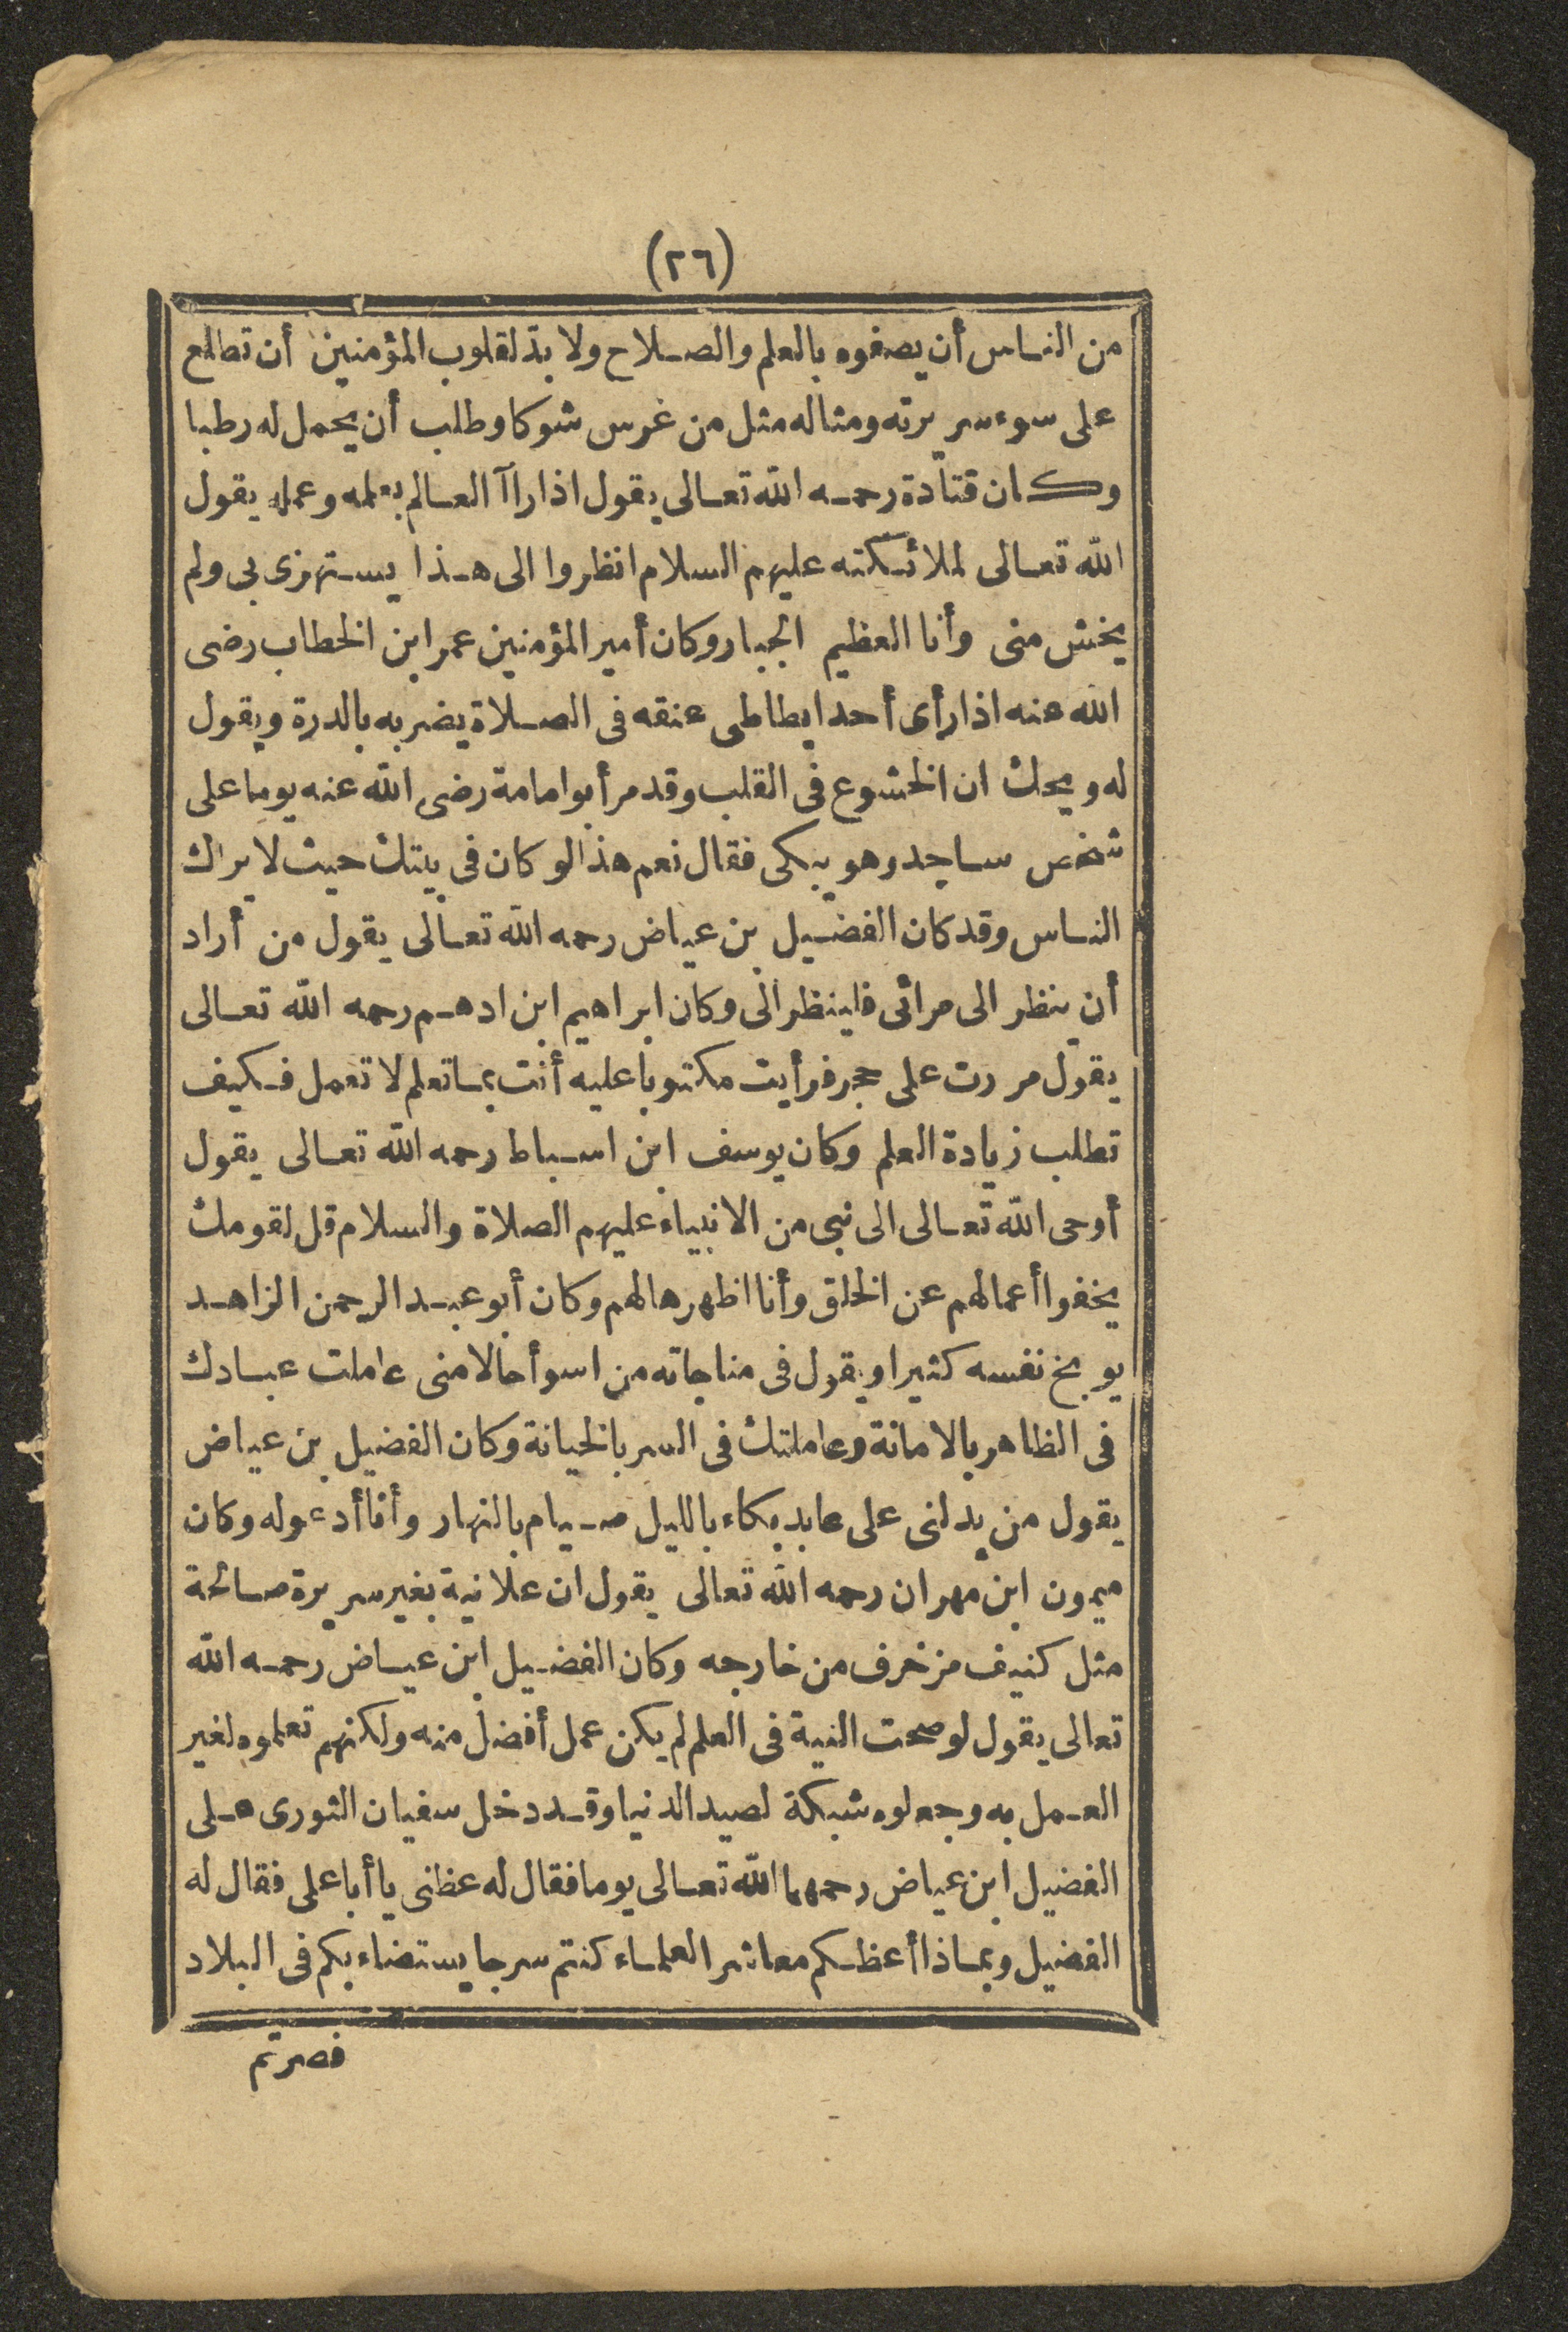 (٢٦)
من الناس أن يصفوه بالعلم والصلاح ولا بدّ لقلوب المؤمنين أن تطلع
على سوء سريرته ومثاله مثل من غرس شوكا وطلب أن يحمل له رطبا
وكان قتادة رحمه الله تعالى يقول اذا راآ العالم بعلمه وعمله يقول
الله تعالى لملائكته عليهم السلام انظروا الى هذا يستهزى بى ولم
يخش منى وأنا العظيم الجبار وكان أمير المؤمنين عمر ابن الخطاب رضى
الله عنه اذا رأى أحدا يطاطى عنقه فى الصلاة يضربه بالدرة ويقول
له ويحك ان الخشوع فى القلب وقد مر أبو امامة رضى الله عنه يوما على
شخص ساجد وهو يبكى فقال نعم هذا لو كان فى بيتك حيث لا يراك
الناس وقد كان الفضيل بن عياض رحمه الله تعالى يقول من أراد
أن ينظر الى مرائى فلينظر الى وكان ابراهيم ابن ادهم رحمه الله تعالى
يقول مررت على حجر فرأيت مكتوبا عليه أنت بما تعلم لا تعمل فكيف
تطلب زيادة العلم وكان يوسف ابن اسباط رحمه الله تعالى يقول
أوحى الله تعالى الى نبى من الانبياء عليهم الصلاة والسلام قل لقومك
يخفوا أعمالهم عن الخلق وأنا اظهرها لهم وكان أبو عبد الرحمن الزاهد
يوبخ نفسه كثيرا ويقول فى مناجاته من اسوأ حالا منى عاملت عبادك
فى الظاهر بالامانة وعاملتك فى السر بالخيانة وكان الفضيل بن عياض
يقول من يدلنى على عابد بكاء بالليل صيام بالنهار وأنا أدعوله وكان
ميمون ابن مهران رحمه الله تعالى يقول ان علانية بغير سريرة صالحة
مثل كنيف مزخرف من خارجه وكان الفضيل ابن عياض رحمه الله
تعالى يقول لو صحت النية فى العلم لم يكن عمل أفضل منه ولكنهم تعلموه لغير
العمل به وجعلوه شبكة لصيد الدنيا وقد دخل سفيان الثورى على
الفضيل ابن عياض رحمهما الله تعالى يوما فقال له عظنى يا أبا على فقال له
الفضيل وبماذا أعظكم معاشر العلماء كنتم سرجا يستضاء بكم فى البلاد
فصرتم